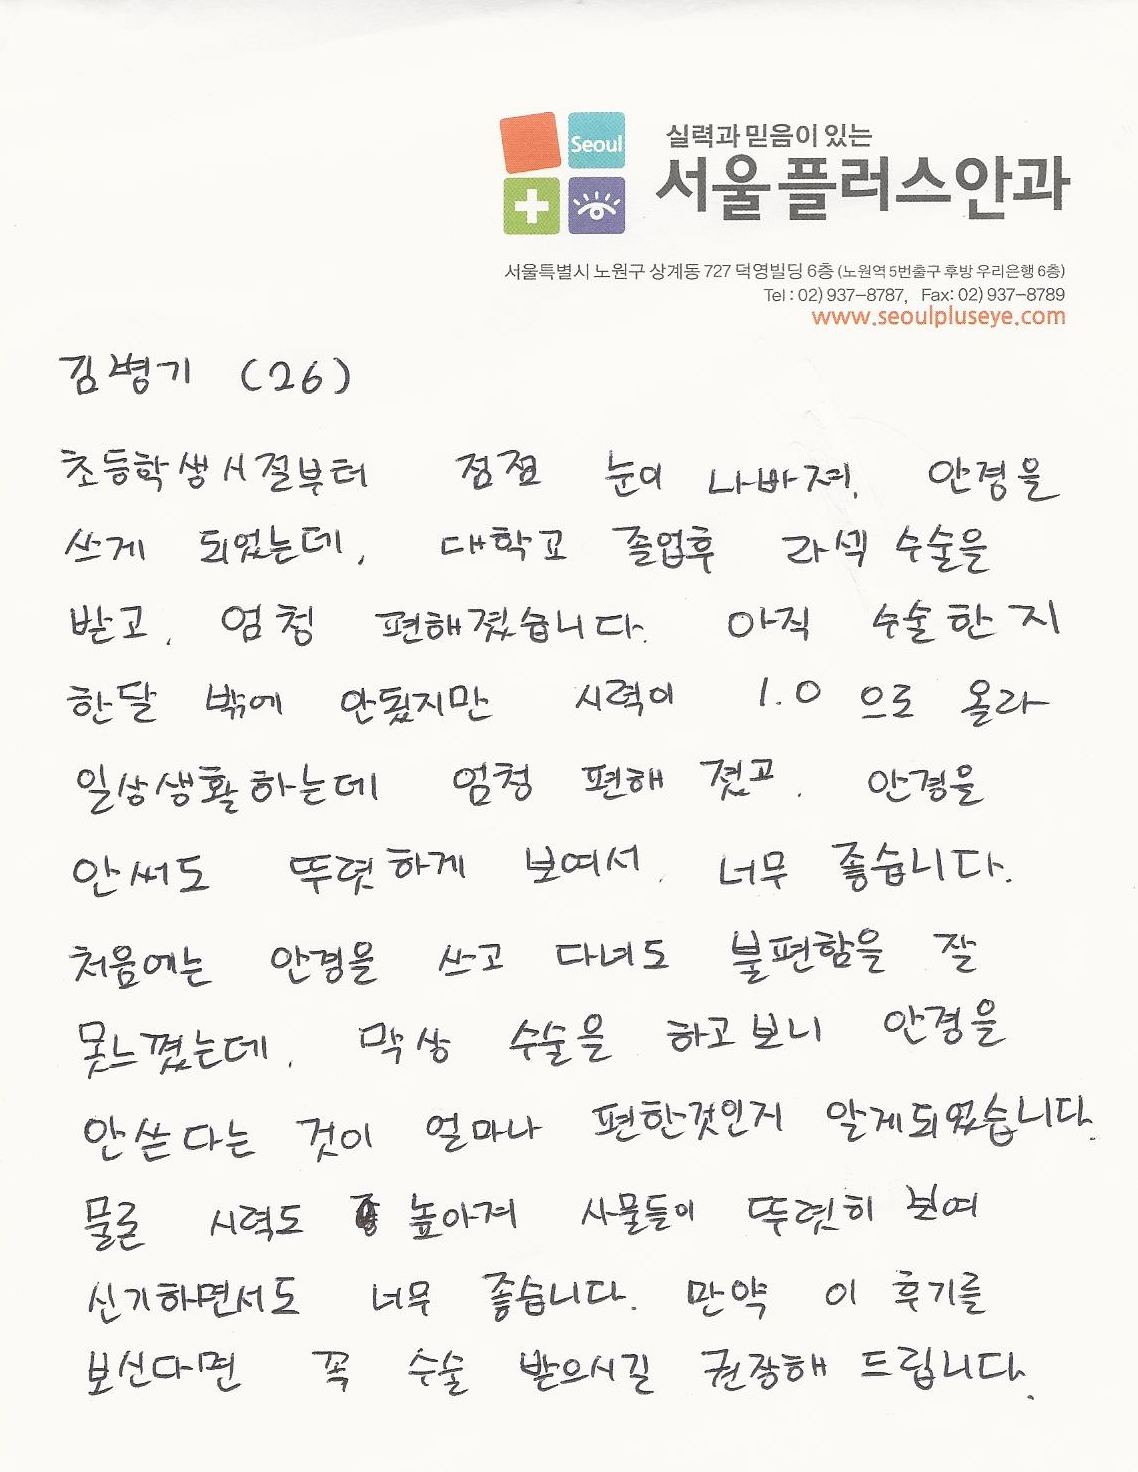 Seoul
실력과 믿음이 있는
서울플러스안과
서울특별시 노원구 상계동 727 덕영빌딩 6층 (노원역 5번출구 후방 우리은행 6층)
Tel : 02) 937-8787, Fax: 02) 937-8789
www.seoulpluseye.com
김병기 (26)
초등학생시절부터 점점 눈이 나빠져, 안경을
쓰게 되었는데, 대학교 졸업후 라섹 수술을
받고, 엄청 편해졌습니다. 아직 수술한지
한달 밖에 안됬지만 시력이 1.0 으로 올라
일상생활하는데 엄청 편해 졌고, 안경을
안써도 뚜렷하게 보여서, 너무 좋습니다.
처음에는 안경을 쓰고 다녀도 불편함을 잘
못느꼈는데, 막상 수술을 하고보니 안경을
안쓴다는 것이 얼마나 편한것인지 알게되었습니다.
물론 시력도 높아져 사물들이 뚜렷히 보여
신기하면서도 너무 좋습니다. 만약 이 후기를
보신다면 꼭 수술 받으시길 권장해 드립니다.